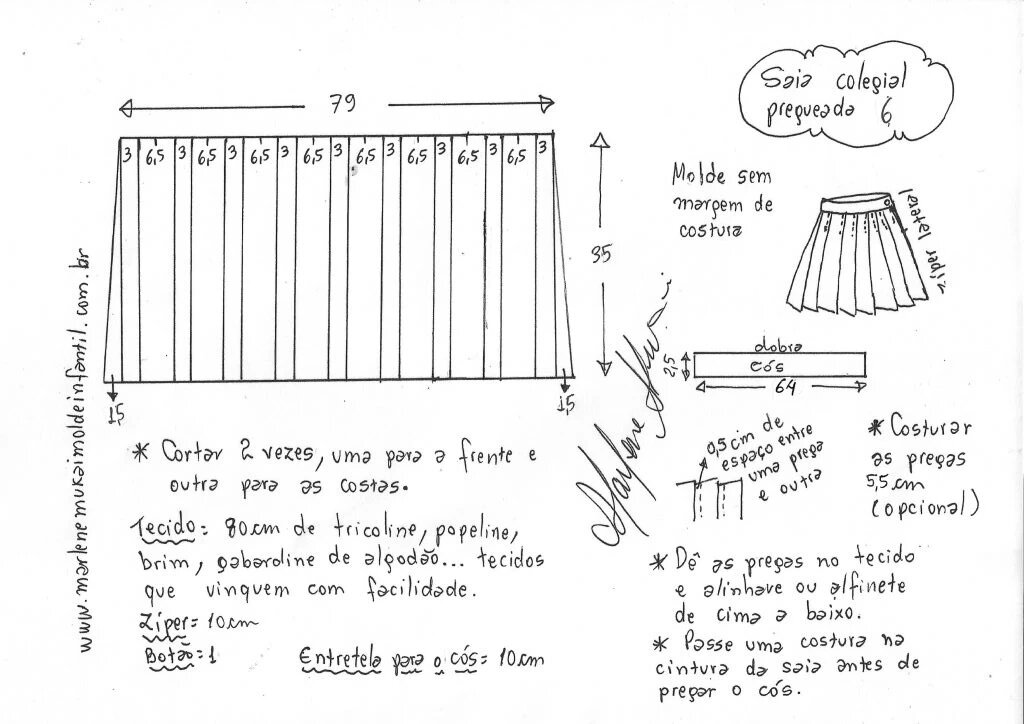 Saia colegial
pregueada 6
79
3 6,5 3 6,5 3 6,5 3 6,5 3 6,5 3 6,5 3 6,5 3 6,5 3
35
1,5
1,5
Molde sem
margem de
costura
ziper lateral
dobra
cós
2,5
64
0,5 cm de
espaço entre
uma prega
e outra
* Costurar
as pregas
5,5 cm
(opcional)
www.marlenemukaimoldeinfantil.com.br
* Cortar 2 vezes, uma para a frente e
outra para as costas.
Tecido= 80 cm de tricoline, popeline,
brim, gabardine de algodão... tecidos
que vinquem com facilidade.
Zíper= 10 cm
Botão=1
Entretela para o cós= 10 cm
* Dê as pregas no tecido
e alinhave ou alfinete
de cima a baixo.
* Passe uma costura na
cintura da saia antes de
pregar o cós.